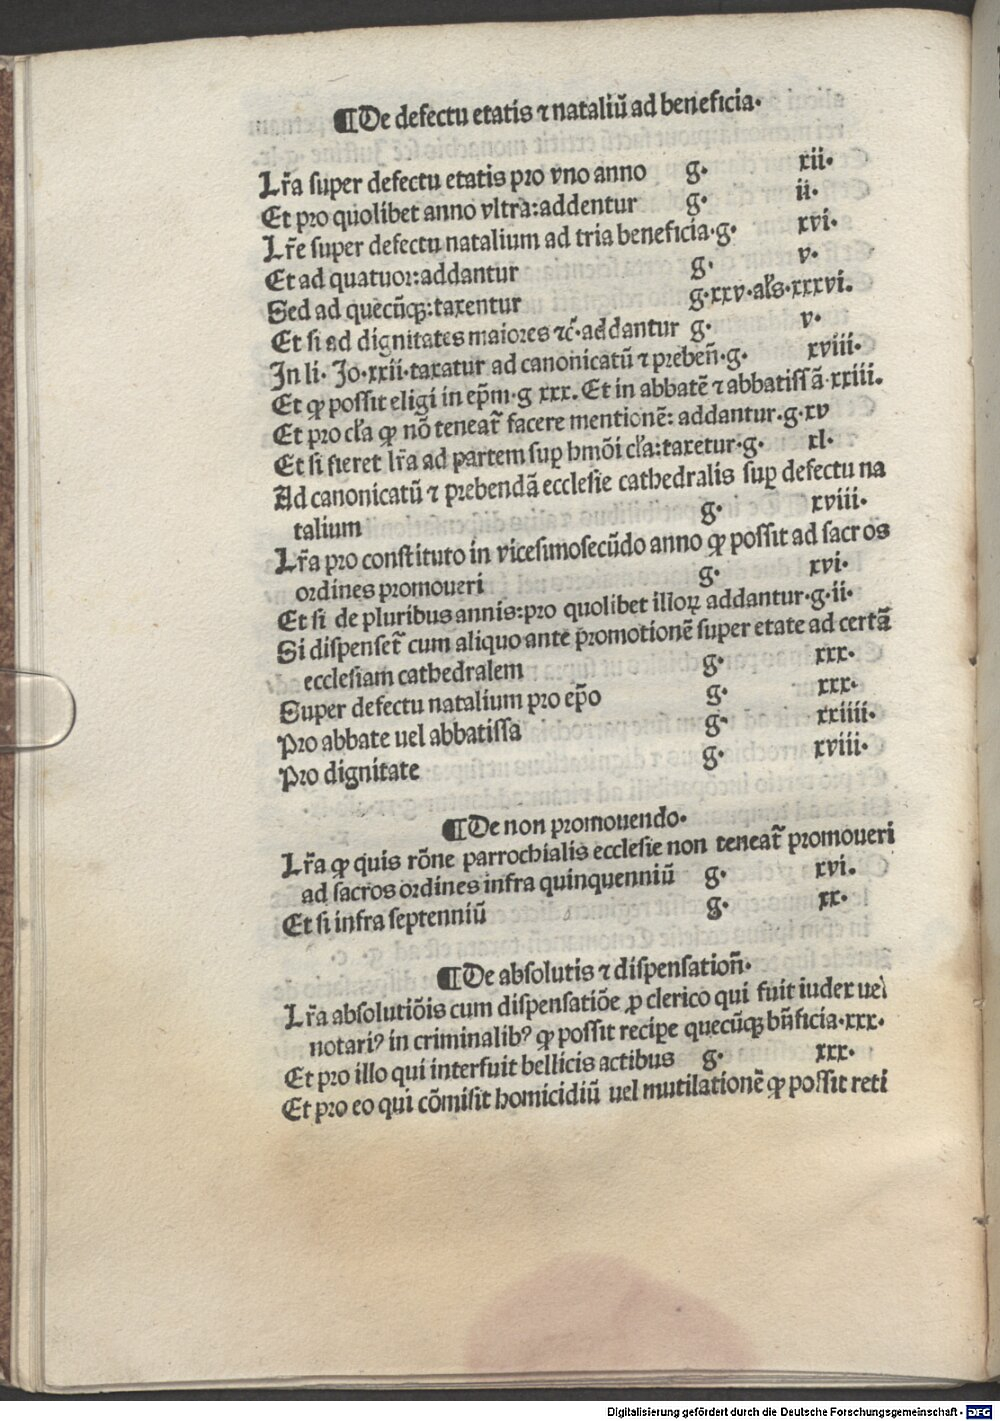 ¶De defectu etatis ⁊ nataliũ ad beneficia·
Lr̃a super defectu etatis pro vno anno g· xii·
Et pro quolibet anno vltra:addentur g· ii·
Lr̃e super defectu natalium ad tria beneficia·g· xvi·
Et ad quatuor:addantur g· v·
Sed ad quecũqꝫ:taxentur g·xxv·al̃s·xxxvi.
Et si ad dignitates maiores ⁊c̃·addantur g· v·
In li· Jo·xxii·taxatur ad canonicatũ ⁊ prebeñ·g· xviii·
Et ꝙ possit eligi in ep̃m·g xxx. Et in abbatẽ ⁊ abbatissã·xxiii.
Et pro cl̃a ꝙ nõ teneat᷑ facere mentionẽ: addantur·g·xv
Et si fieret lr̃a ad partem suꝑ hmõi cl̃a:taxetur·g· xl·
Ad canonicatũ ⁊ prebendã ecclesie cathedralis suꝑ defectu na
talium g· xviii·
Lr̃a pro constituto in vicesimosecũdo anno ꝙ possit ad sacros
ordines promoueri g· xvi·
Et si de pluribus annis:pro quolibet illoꝝ addantur·g·ii·
Si dispenset᷑ cum aliquo ante promotionẽ super etate ad certã
ecclesiam cathedralem g· xxx·
Super defectu natalium pro ep̃o g· xxx·
Pro abbate uel abbatissa g· xxiiii·
Pro dignitate g· xviii·
¶De non promouendo·
Lr̃a ꝙ quis rõne parrochialis ecclesie non teneat᷑ promoueri
ad sacros ordines infra quinquenniũ g· xvi.
Et si infra septenniũ g· xx·
¶De absolutis ⁊ dispensatioñ·
Lr̃a absolutiõis cum dispensatiõe ꝓ clerico qui fuit iudex uel
notariꝰ in criminalibꝰ ꝙ possit recipe quecũqꝫ bñficia·xxx·
Et pro illo qui interfuit bellicis actibus g· xxx·
Et pro eo qui cõmisit homicidiũ uel mutilationẽ ꝙ possit reti
Digitalisierung gefördert durch die Deutsche Forschungsgemeinschaft - DFG